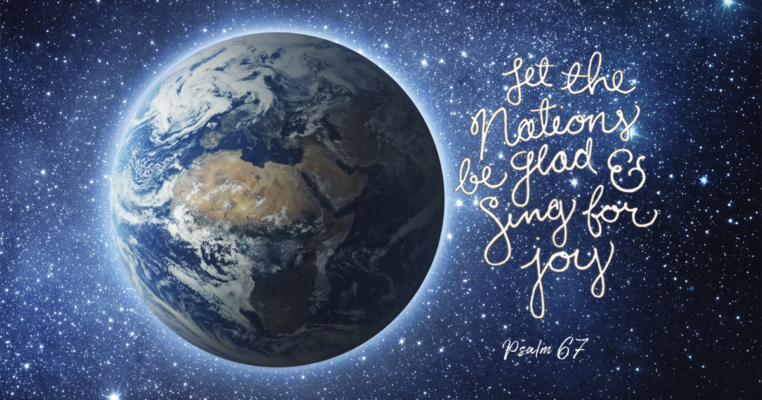 Let the
Nations
be glad &
Sing for
joy
Psalm 67